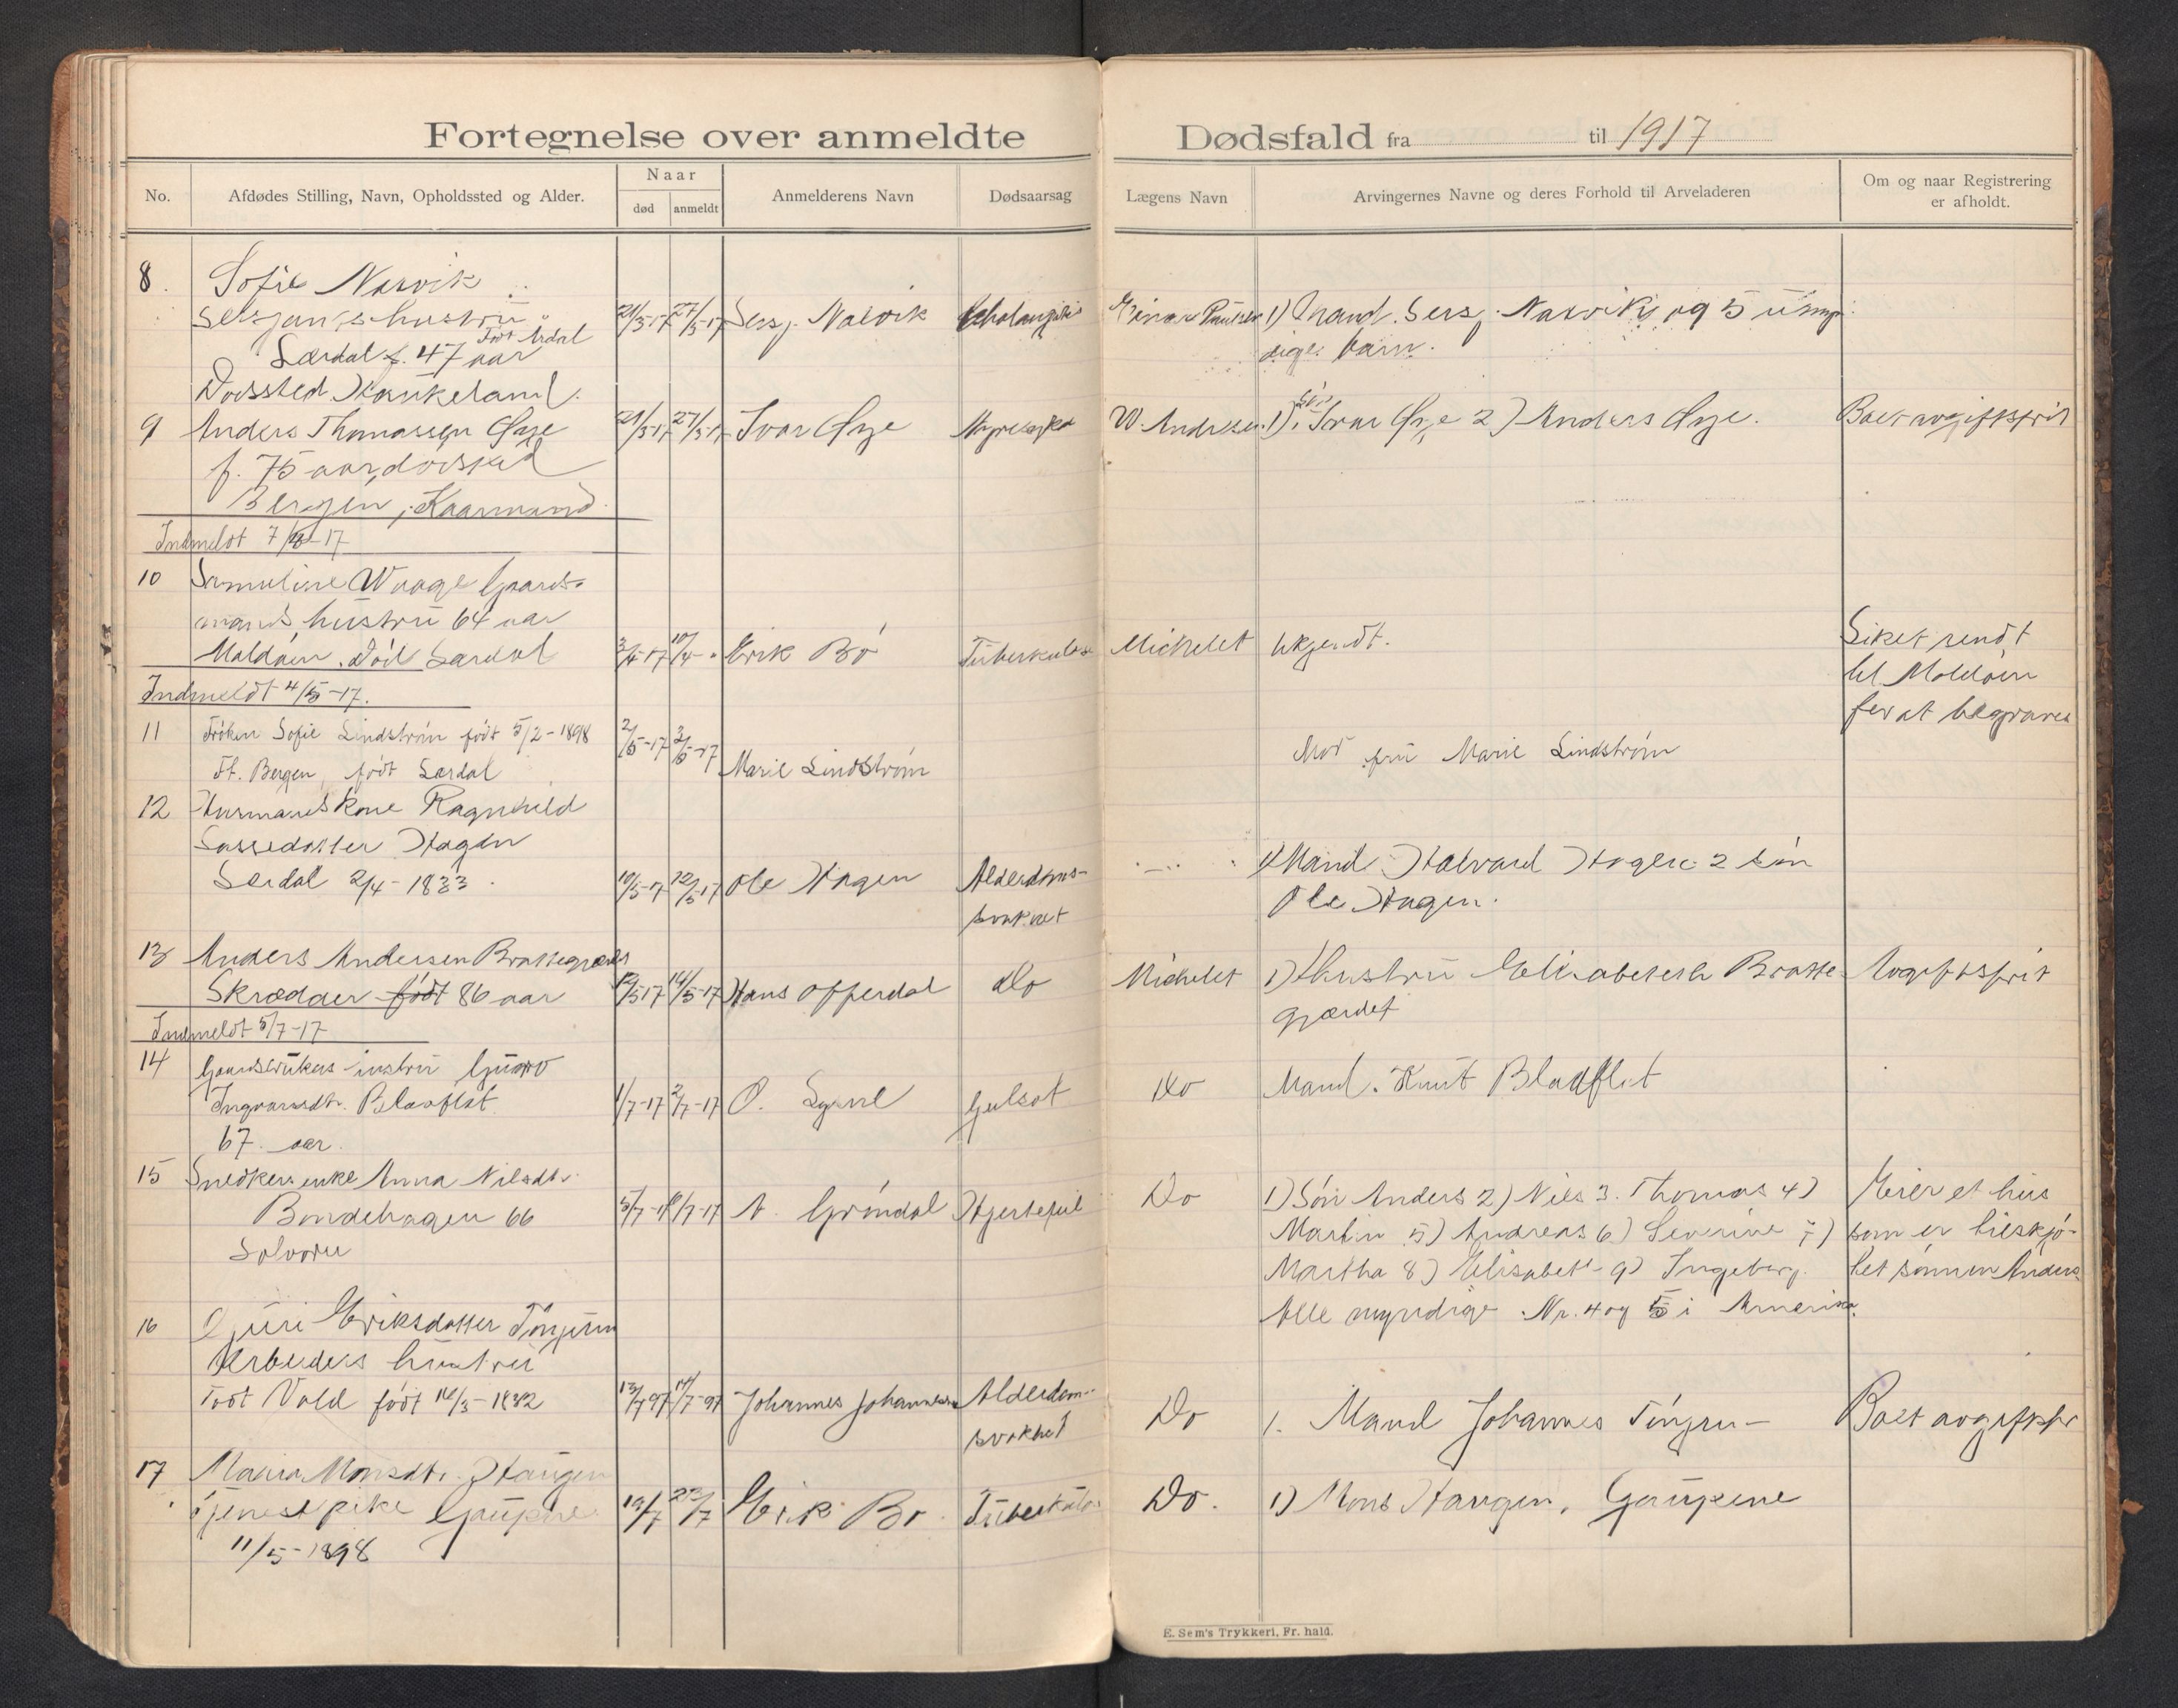 Fortegnelse over anmeldte Dødsfald fra til 1917
No. Afdødes Stilling, Navn, Opholdssted og Alder. Naar død anmeldt Anmelderens Navn Dødsaarsag Lægens Navn Arvingernes Navne og deres Forhold til Arveladeren Om og naar Registrering er afholdt.
8. Sofie Nasvik
Sersjants hustru
Født Ardal
Lærdal f. 47 aar
21/3-17 27/3-17 Sersj. Nasvik
1) Mand. Sersj. Nasvik og 5 umyn
dige barn.
Dødssted Haukeland.
9 Anders Thomassen Øye
f. 75 aar, dødsted
Bergen, Kaarmand.
21/3-17 27/3-17 Ivar Øye Nyresyke W. Andresen 1) Søn Ivar Øye 2) Anders Øye. Boet avgiftsfrit
Indmeldt 7/4-17
10 Samuline Waage Gaard-
mands hustru 64 aar
Maldøen. Død Lærdal
3/4-17 10/4- " Erik Bø Tuberkulose Michelet Ukjendt. Liket sendt
til Moldøen
for at begraves
Indmeldt 4/5-17.
11 Frøken Sofie Lindstrøm født 5/2-1898
Ft. Bergen, født Lærdal
2/5-17 3/5-17 Marie Lindstrøm Mor fru Marie Lindstrøm
12 Husmandskone Ragnhild
Lassedatter Hagen
Lærdal 2/4-1833.
10/5-17 12/5-17 Ole Hagen Alderdoms-
svakhet
1) Mand Halvard Hagen 2 Søn
Ole Hagen.
13 Anders Andersen Brattegjærdet
Skrædder født 86 aar
12/5-17 14/5-17 Hans Offerdal Do Michelet 1) Hustru Elisabeth Bratte-
gjærdet
Avgiftsfrit
Indmeldt 5/7-17
14 Gaardbrukers hustru Guro
Ingvarsdtr. Blaaflat
67. aar.
1/7-17 2/7-17 O. Ljøsne Gulsot Do Mand. Knut Blaaflat
15 Snedkers enke Anna Nilsdtr.
Bondehagen 66
Solvorn
5/7-17 /7-17 A. Grøndal Hjertefeil Do 1) Søn Anders 2) Nils 3. Thomas 4)
Martin 5) Andreas 6) Severine 7)
Martha 8) Elisabet 9) Ingeberg.
Alle myndige. Nr. 4 og 5 i Amerika.
Eier et hus
som er tilskjø-
tet sønnen Anders
16 Guri Eriksdatter Tønjum
Arbeiders hustru
Født Vold født 14/3-1832
13/7-97 14/7-97 Johannes Johannesen Alderdom-
svakhet
Do 1. Mand Johannes Tønjum Boet avgiftsfr
17 Maria Monsdtr. Haugen
tjenestpike Gaupne
11/5-1898
19/7 23/7 Erik Bø Tuberkulose Do. 1) Mons Haugen, Gaupene
E. Sem's Trykkeri, Fr.hald.